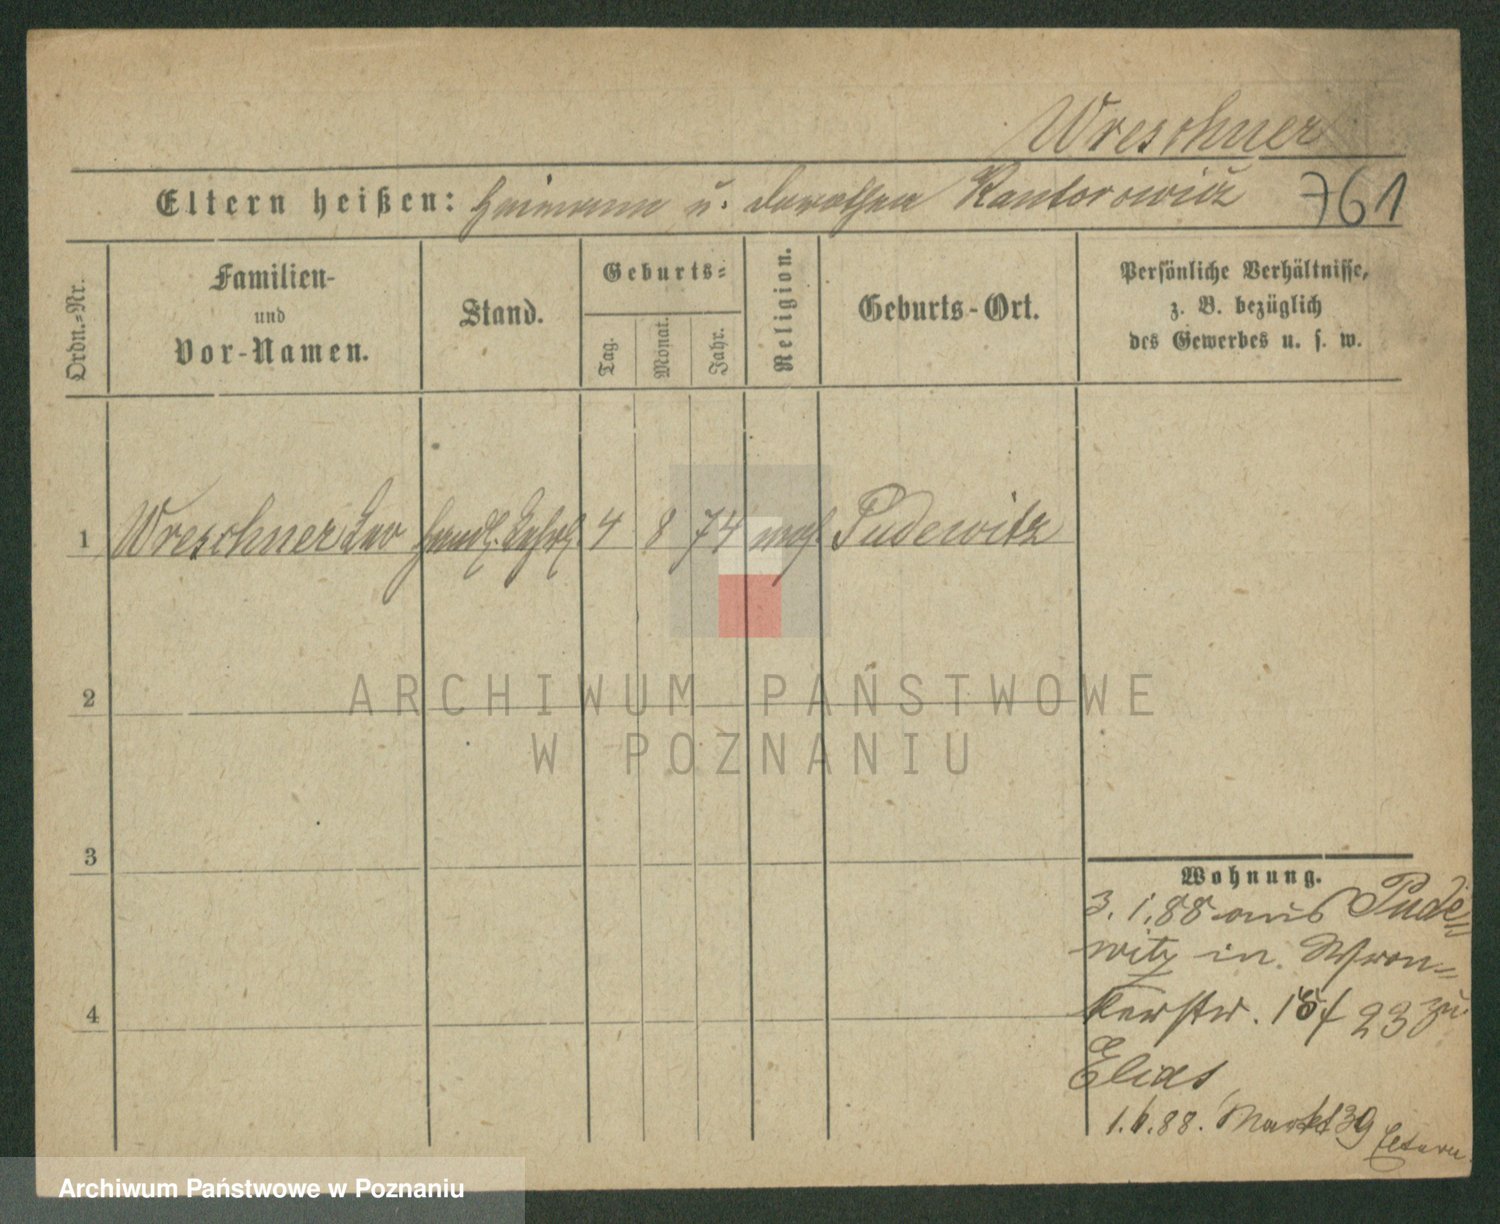 Wreschner
Eltern heißen: Heimann u. Dorothea Kantorowicz 761
Ordn.-Nr.
Familien-
und
Vor-Namen.
Stand.
Geburts-
Tag.
Monat.
Jahr.
Religion.
Geburts-Ort.
Persönliche Verhältnisse,
z. B. bezüglich
des Gewerbes u. s. w.
1 Wreschner Leo Handl. Lehrl. 4 8 74 mos. Pudewitz
2
3
4
Wohnung.
3. 1. 88 aus Pude=
witz in Wron=
kerstr. 23 zu
Elias
1. 6. 88. Markt 39 Eltern
ARCHIWUM PAŃSTWOWE
W POZNANIU
Archiwum Państwowe w Poznaniu